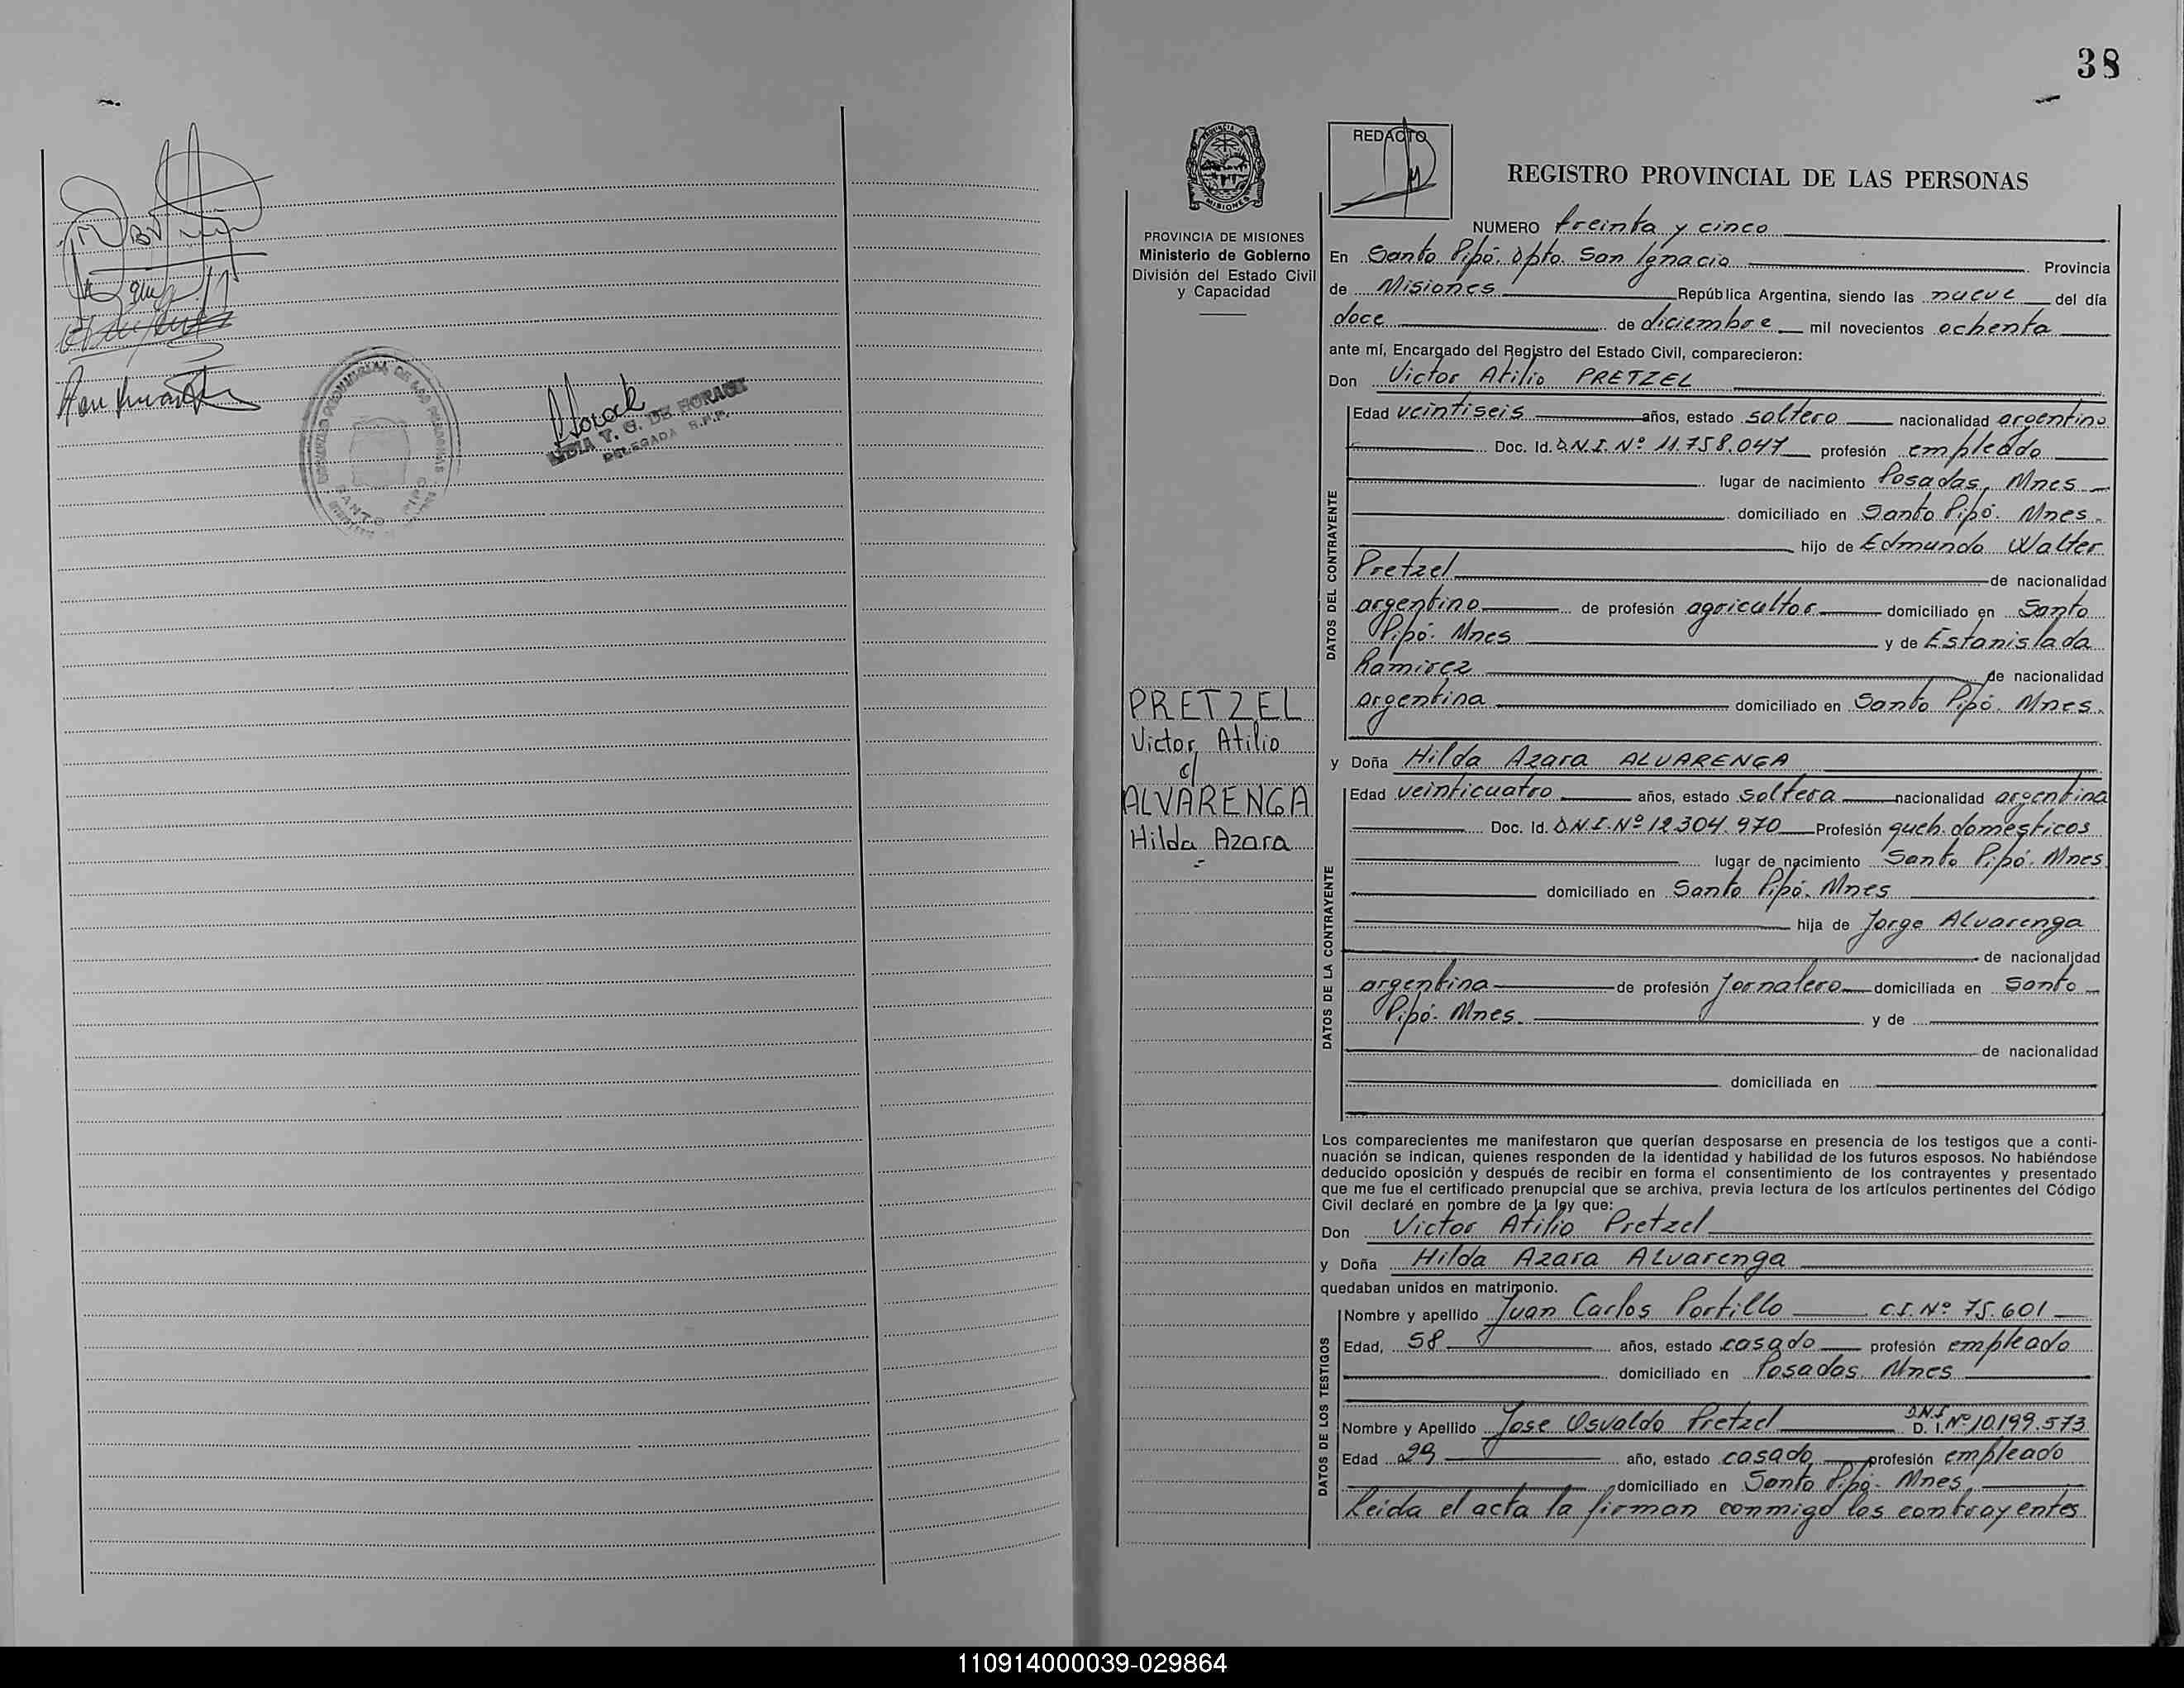 Horack
LIDIA T. G. DE HORACK
DELEGADA R.P.P.
SANTO
38
REDACTO
REGISTRO PROVINCIAL DE LAS PERSONAS
PROVINCIA DE MISIONES
Ministerio de Gobierno
División del Estado Civil
y Capacidad
PRETZEL
Victor Atilio
c/
ALVARENGA
Hilda Azara
NUMERO treinta y cinco
En Santo Pipó. Dpto. San Ignacio Provincia
de Misiones República Argentina, siendo las nueve del día
doce de diciembre mil novecientos ochenta
ante mí, Encargado del Registro del Estado Civil, comparecieron:
Don Victor Atilio PRETZEL
DATOS DEL CONTRAYENTE
Edad veintiseis años, estado soltero nacionalidad argentino
Doc. Id. D.N.I. Nº 11.758.047 profesión empleado
lugar de nacimiento Posadas, Mnes
domiciliado en Santo Pipó. Mnes.
hijo de Edmundo Walter
Pretzel de nacionalidad
argentino de profesión agricultor domiciliado en Santo
Pipó. Mnes y de Estanislada
Ramirez de nacionalidad
argentina domiciliado en Santo Pipó. Mnes.
y Doña Hilda Azara ALVARENGA
DATOS DE LA CONTRAYENTE
Edad veinticuatro años, estado soltera nacionalidad argentina
Doc. Id. D.N.I. Nº 12.304.970 Profesión queh. domesticos
lugar de nacimiento Santo Pipó. Mnes
domiciliado en Santo Pipó. Mnes
hija de Jorge Alvarenga
de nacionalidad
argentina de profesión Jornalero domiciliada en Santo
Pipó. Mnes. y de
de nacionalidad
domiciliada en
Los comparecientes me manifestaron que querían desposarse en presencia de los testigos que a conti-
nuación se indican, quienes responden de la identidad y habilidad de los futuros esposos. No habiéndose
deducido oposición y después de recibir en forma el consentimiento de los contrayentes y presentado
que me fue el certificado prenupcial que se archiva, previa lectura de los artículos pertinentes del Código
Civil declaré en nombre de la ley que:
Don Victor Atilio Pretzel
y Doña Hilda Azara Alvarenga
quedaban unidos en matrimonio.
DATOS DE LOS TESTIGOS
Nombre y apellido Juan Carlos Portillo C.I. Nº 75.601
Edad, 58 años, estado casado profesión empleado
domiciliado en Posadas. Mnes
Nombre y Apellido Jose Osvaldo Pretzel D.N.I. D. I. Nº 10.199.573
Edad 29 año, estado casado profesión empleado
domiciliado en Santo Pipó. Mnes.
Leida el acta la firman conmigo los contrayentes
110914000039-029864